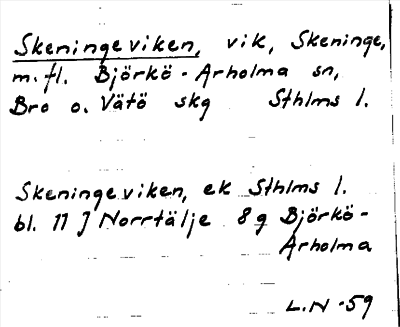 Skeningeviken, vik, Skeninge,
m.fl. Björkö-Arholma sn,
Bro o. Vätö skg Sthlms l.
Skeningeviken, ek Sthlms l.
bl. 11 J Norrtälje 8g Björkö-
Arholma
L.N -59